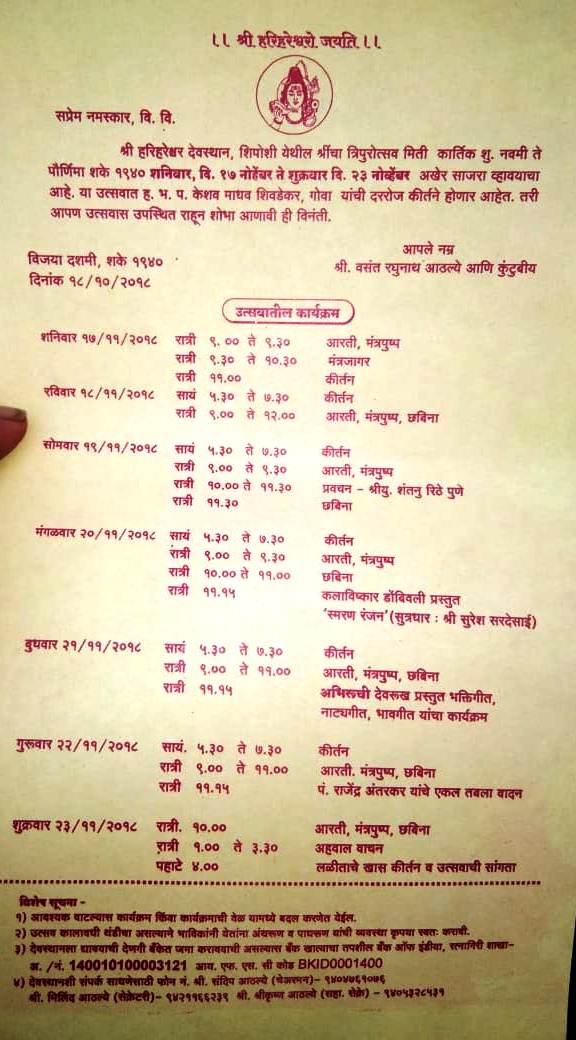 ।। श्री हरिहरेश्वरो जयति ।।
सप्रेम नमस्कार, वि. वि.
श्री हरिहरेश्वर देवस्थान, शिपोशी येथील श्रींचा त्रिपुरोत्सव मिती कार्तिक शु. नवमी ते
पौर्णिमा शके १९४० शनिवार, वि. १७ नोव्हेंबर ते शुक्रवार वि. २३ नोव्हेंबर अखेर साजरा व्हावयाचा
आहे. या उत्सवात ह. भ. प. केशव माधव शिवडेकर, गोवा यांची दररोज कीर्तने होणार आहेत. तरी
आपण उत्सवास उपस्थित राहून शोभा आणावी ही विनंती.
आपले नम्र
विजया दशमी, शके १९४०
श्री. वसंत रघुनाथ आठल्ये आणि कुंटुबीय
दिनांक १८/१०/२०१८
उत्सवातील कार्यक्रम
शनिवार १७/११/२०१८ रात्री ९. ०० ते ९.३० आरती, मंत्रपुष्प
रात्री ९.३० ते १०.३० मंत्रजागर
रात्री ११.०० कीर्तन
रविवार १८/११/२०१८ सायं ५.३० ते ७.३० कीर्तन
रात्री ९.०० ते १२.०० आरती, मंत्रपुष्प, छबिना
सोमवार १९/११/२०१८ सायं ५.३० ते ७.३० कीर्तन
रात्री ९.०० ते ९.३० आरती, मंत्रपुष्प
रात्री १०.०० ते ११.३० प्रवचन - श्रीयु. शंतनु रिठे पुणे
रात्री ११.३० छबिना
मंगळवार २०/११/२०१८ सायं ५.३० ते ७.३० कीर्तन
रात्री ९.०० ते ९.३० आरती, मंत्रपुष्प
रात्री १०.०० ते ११.०० छबिना
रात्री ११.१५ कलाविष्कार डोंबिवली प्रस्तुत
'स्मरण रंजन' (सुत्रधार : श्री सुरेश सरदेसाई)
बुधवार २१/११/२०१८ सायं ५.३० ते ७.३० कीर्तन
रात्री ९.०० ते ११.०० आरती, मंत्रपुष्प, छबिना
रात्री ११.१५ अभिरूची देवरूख प्रस्तुत भक्तिगीत,
नाट्यगीत, भावगीत यांचा कार्यक्रम
गुरूवार २२/११/२०१८ सायं. ५.३० ते ७.३० कीर्तन
रात्री ९.०० ते ११.०० आरती. मंत्रपुष्प, छबिना
रात्री ११.१५ पं. राजेंद्र अंतरकर यांचे एकल तबला वादन
शुक्रवार २३/११/२०१८ रात्री. १०.०० आरती, मंत्रपुष्प, छबिना
रात्री १.०० ते ३.३० अहवाल वाचन
पहाटे ४.०० लळीताचे खास कीर्तन व उत्सवाची सांगता
विशेष सूचना -
१) आवश्यक वाटल्यास कार्यक्रम किंवा कार्यक्रमाची वेळ यामध्ये बदल करणेत येईल.
२) उत्सव कालावधी थंडीचा असल्याने भाविकांनी येतांना अंथरूण व पांघरूण यांची व्यवस्था कृपया स्वतः करावी.
३) देवस्थानला द्यावयाची देणगी बँकेत जमा करावयाची असल्यास बँक खात्याचा तपशील बँक ऑफ इंडीया, रत्नागिरी शाखा-
अ. /नं. 140010100003121 आय. एफ. एस. सी कोड BKID0001400
४) देवस्थानशी संपर्क साधणेसाठी फोन नं. श्री. संदिप आठल्ये (चेअरमन)- ९४०४७६१०७६
श्री. मिलिंद आठल्ये (सेक्रेटरी)- ९४२११६६२३९ श्री. श्रीकृष्ण आठल्ये (सहा. सेक्रे) - ९४०५३२८५३१